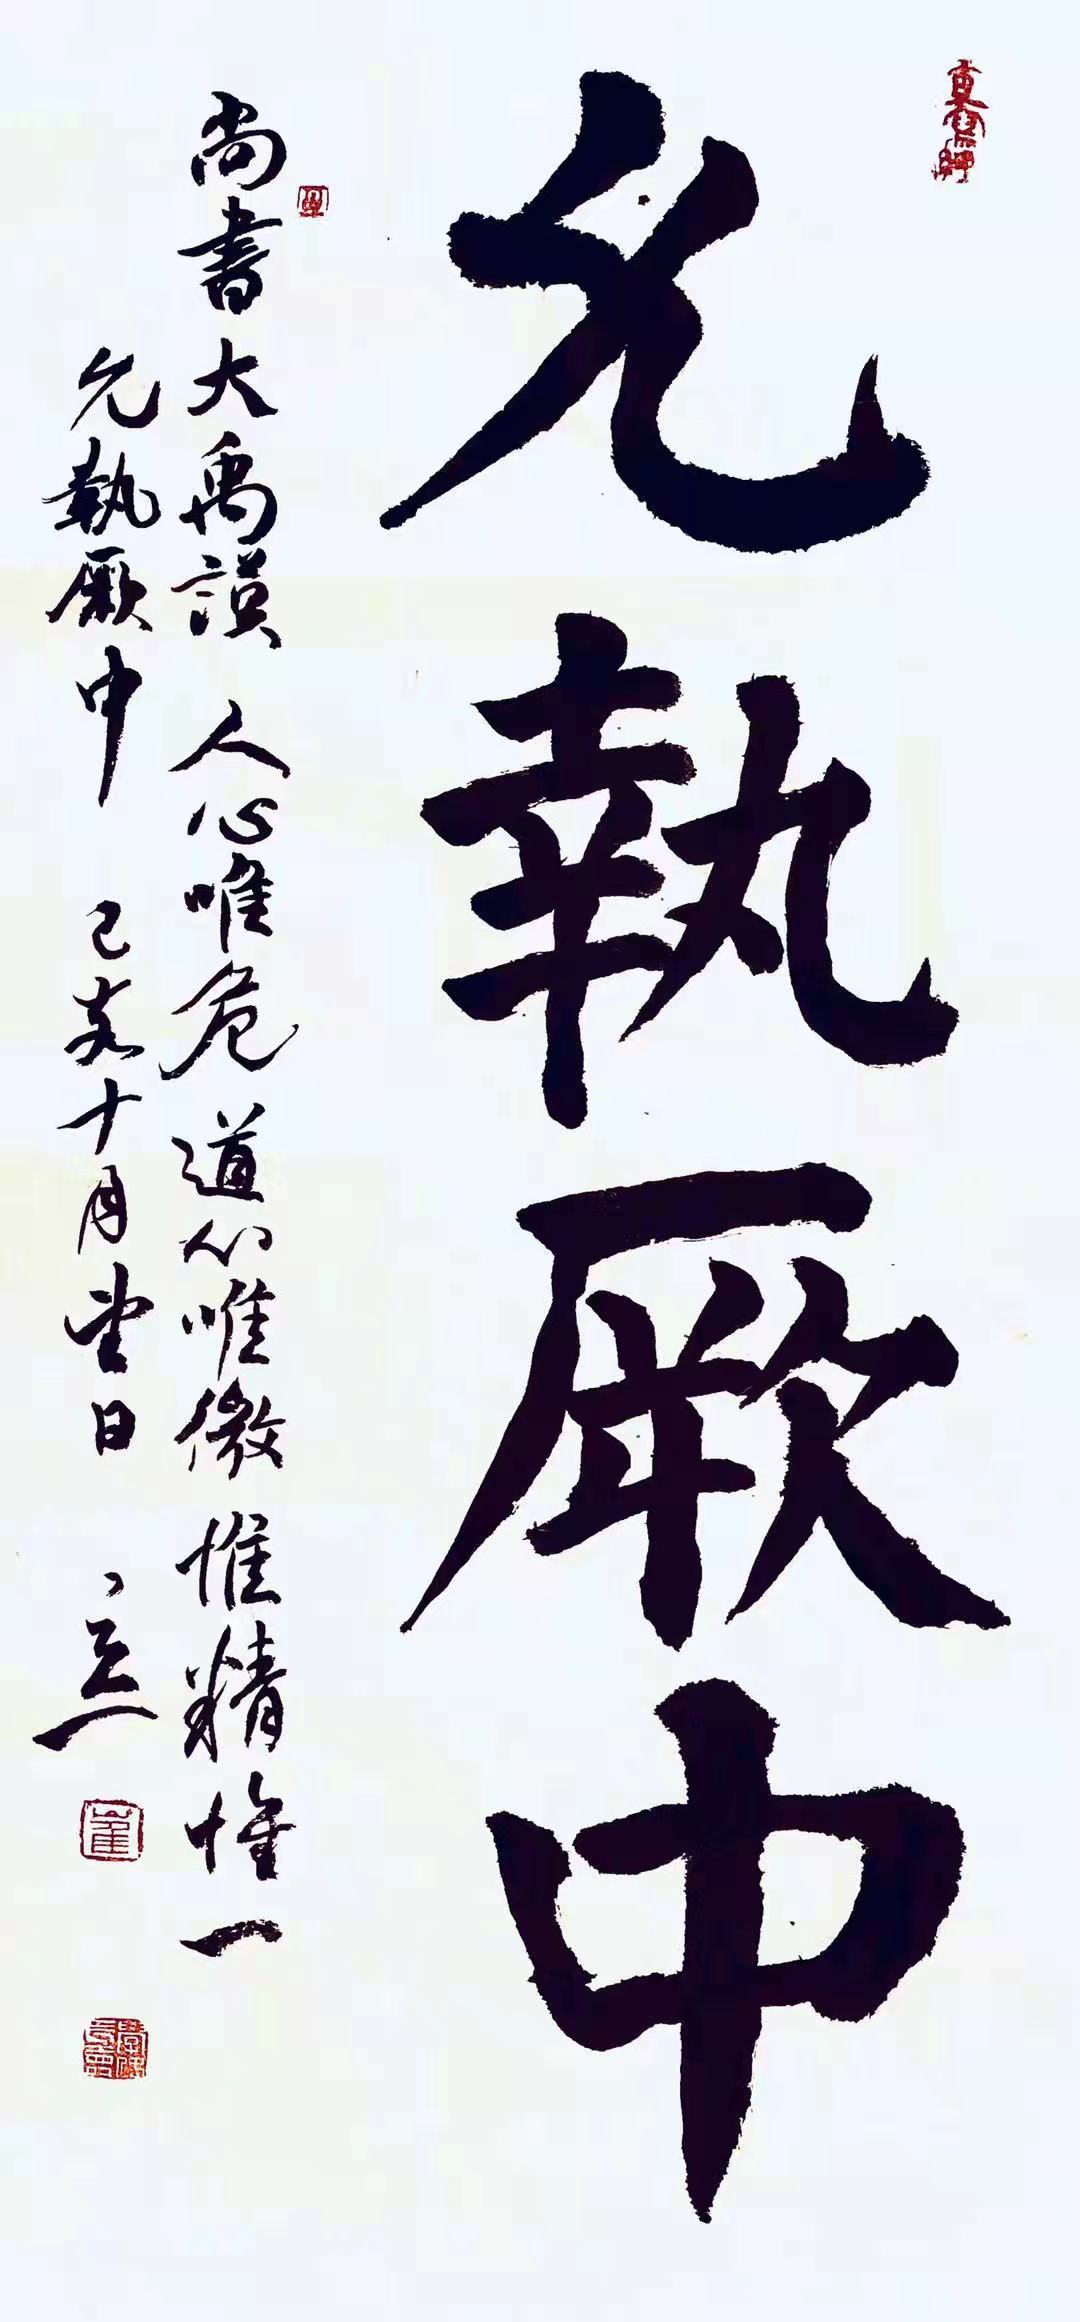 允執厥中
尚書大禹謨 人心唯危 道心唯微 惟精惟一
允執厥中 己亥十月望日 立
崔